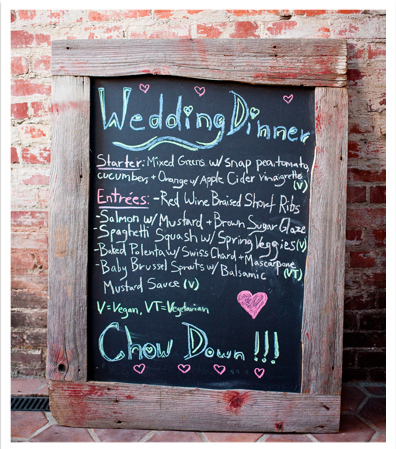 Wedding Dinner
Starter: Mixed Greens w/ snap pea, tomato,
cucumber, + Orange w/ Apple Cider Vinaigrette
(V)
Entrées: -Red Wine Braised Short Ribs
-Salmon w/ Mustard + Brown Sugar Glaze
-Spaghetti Squash w/ Spring Veggies (V)
-Baked Polenta w/ Swiss Chard + Mascarpone
(VT)
-Baby Brussel Sprouts w/ Balsamic
Mustard Sauce (V)
V=Vegan, VT=Vegetarian
Chow Down!!!